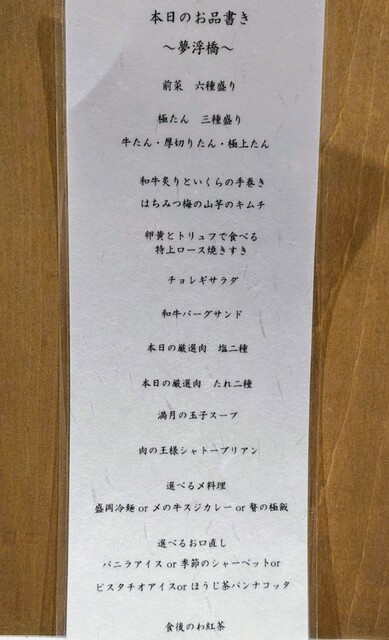 本日のお品書き
～夢浮橋～
前菜　六種盛り
極たん　三種盛り
牛たん・厚切りたん・極上たん
和牛炙りといくらの手巻き
はちみつ梅の山芋のキムチ
卵黄とトリュフで食べる
特上ロース焼きすき
チョレギサラダ
和牛バーグサンド
本日の厳選肉　塩二種
本日の厳選肉　たれ二種
満月の玉子スープ
肉の王様シャトーブリアン
選べる〆料理
盛岡冷麺 or 〆の牛スジカレー or 贅の極飯
選べるお口直し
バニラアイス or 季節のシャーベットor
ピスタチオアイスor ほうじ茶パンナコッタ
食後のわ紅茶